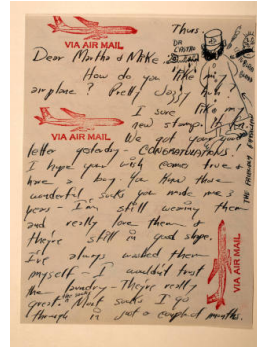 Thurs
DR
CASTRO
VIA AIR MAIL
Dear Martha & Mike
How do you like my
airplane? Pretty Jazzy huh?
I sure like my
new stamps
VIA AIR MAIL
We got your
letter yesterday - CONGRATULATIONS!
I hope you wish comes true &
have a boy. You know those
wonderful socks you made me 3
years - I'm still wearing them
and really love them &
they're still in good shape.
I've always washed them
myself - I wouldn't trust
the laundry - They're really
great. Most socks I go
through in just a couple of months.
VIA AIR MAIL
THE FRIENDLY